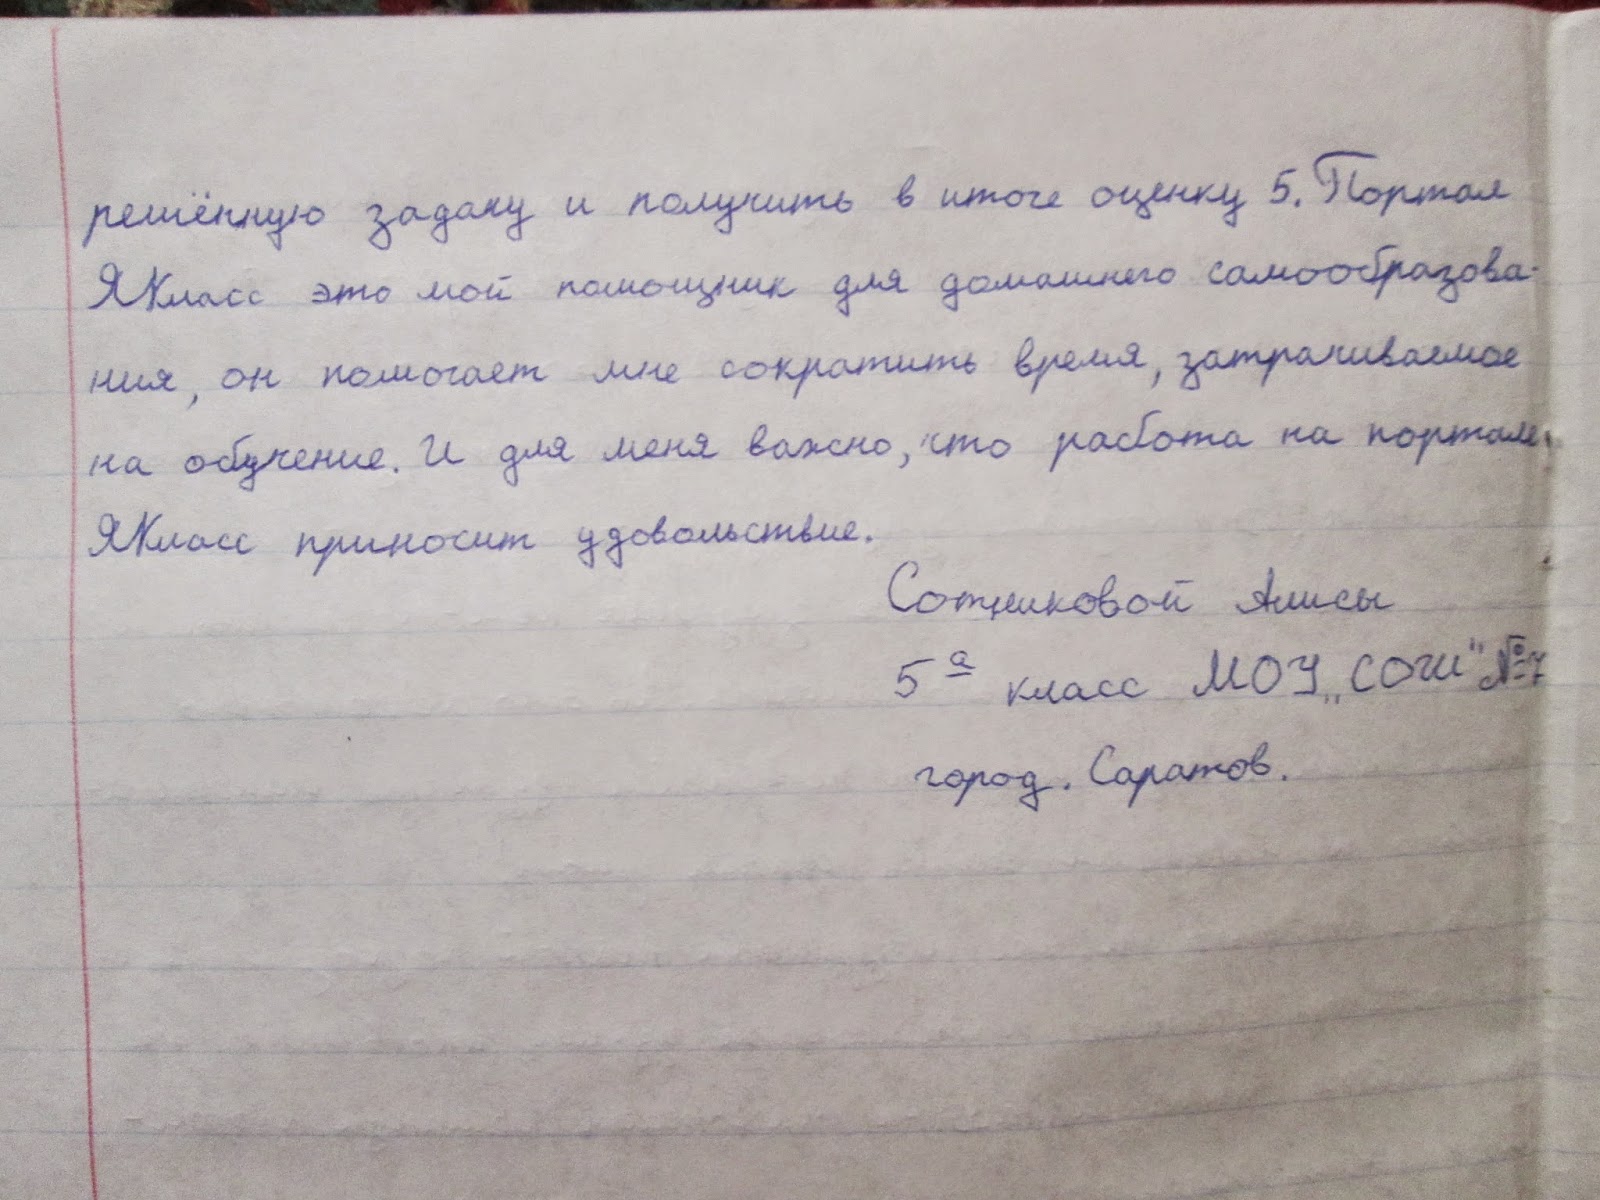 решённую задачу и получить в итоге оценку 5. Портал
ЯКласс это мой помощник для домашнего самообразова-
ния, он помогает мне сократить время, затрачиваемое
на обучение. И для меня важно, что работа на портале
ЯКласс приносит удовольствие.
Сотниковой Алисы
5а класс МОУ „СОШ" №7
город. Саратов.